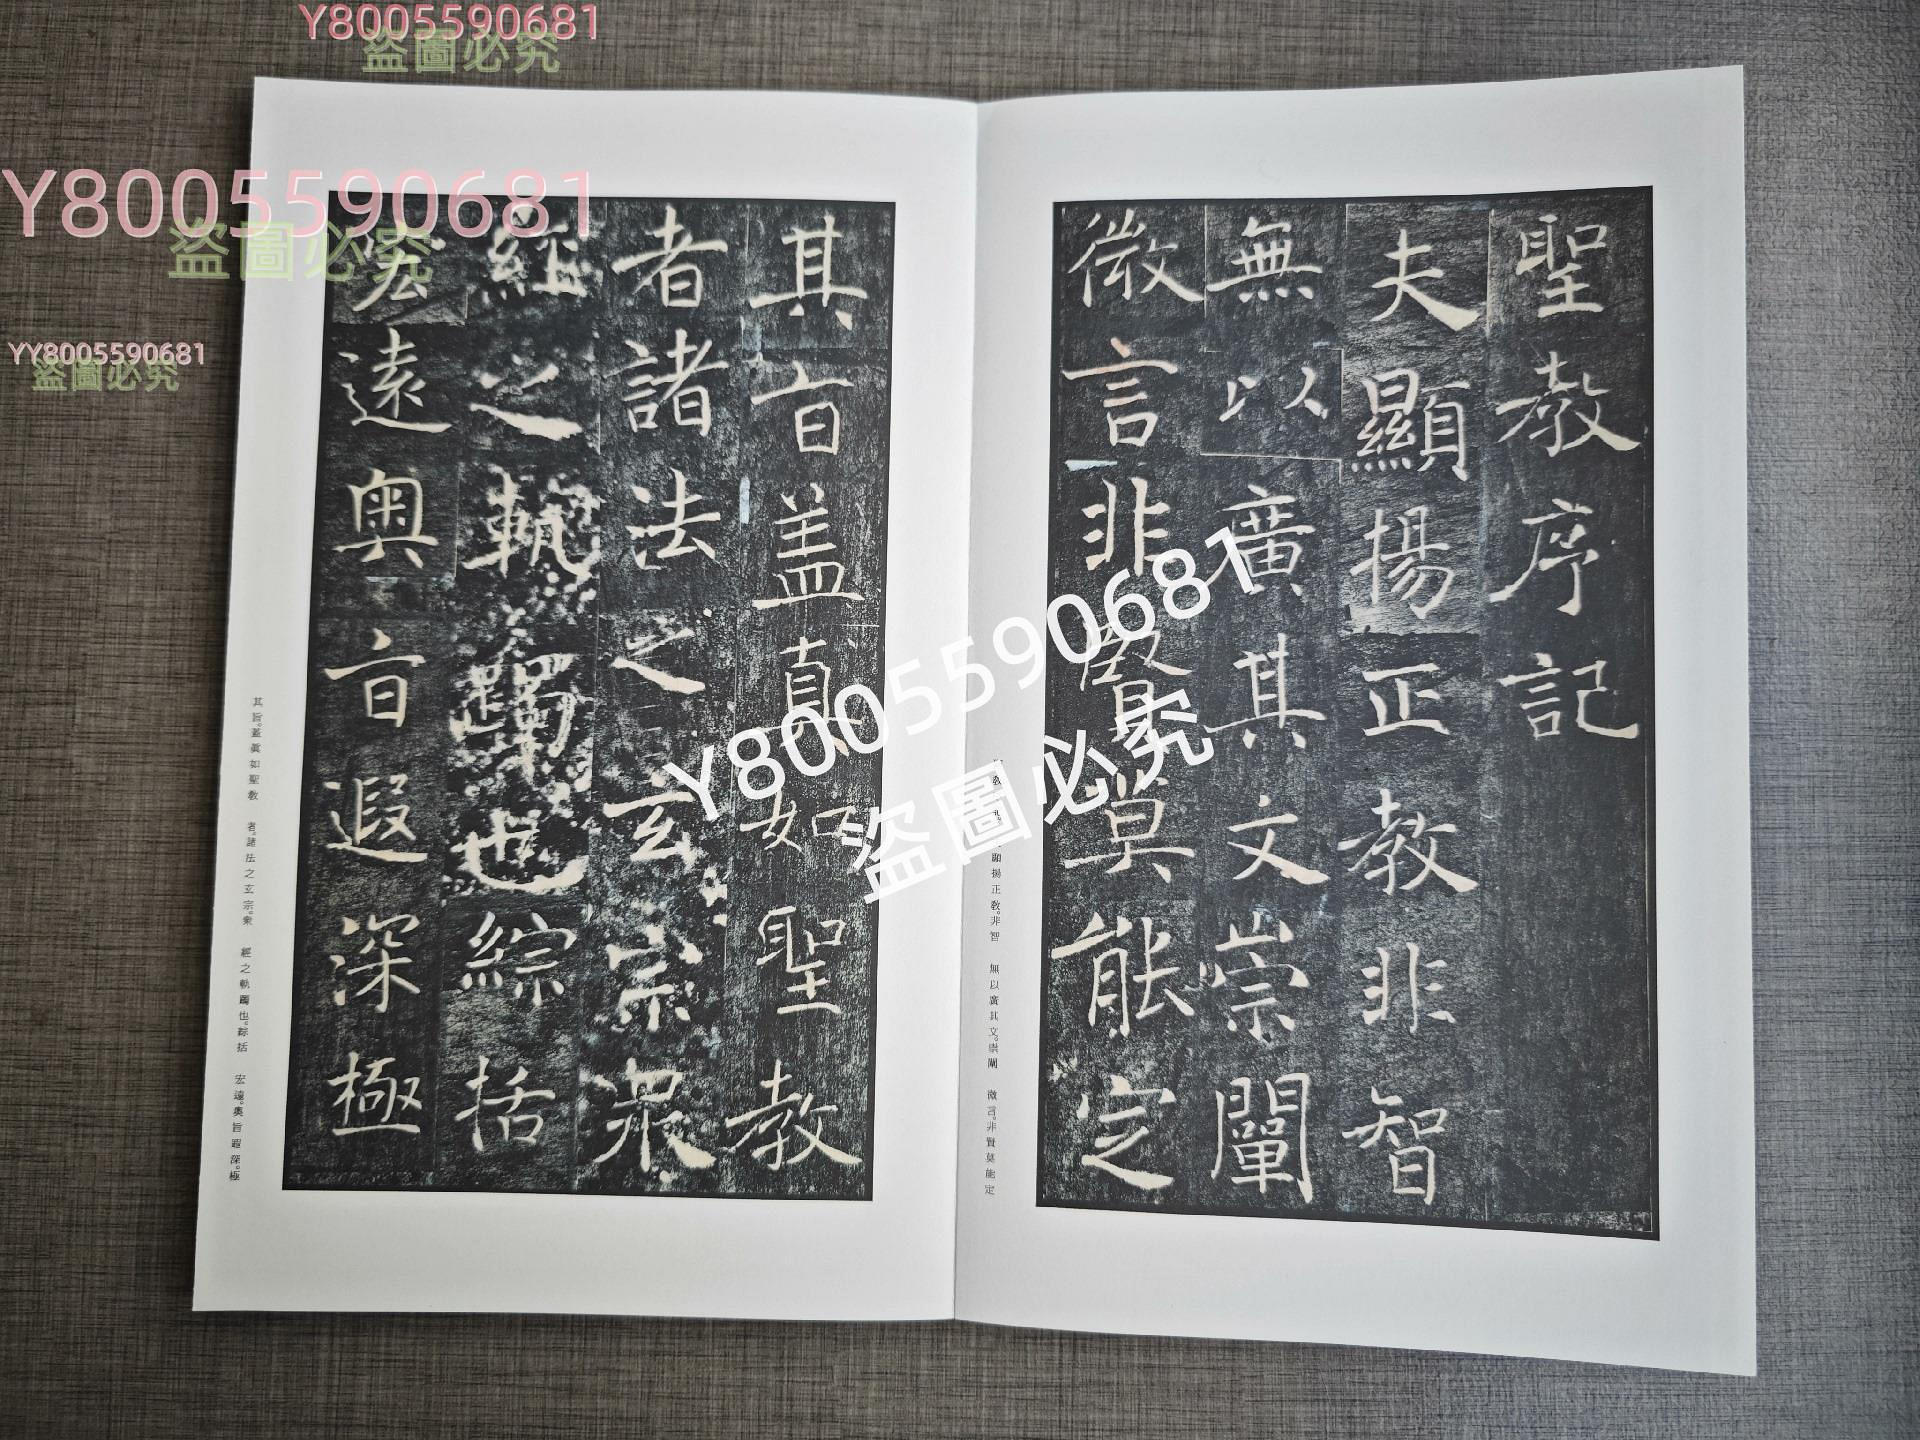 聖教序記
夫顯揚正教非智
無以廣其文崇闡
微言非賢莫能定
其旨蓋真如聖教
者諸法之玄宗衆
經之軌躅也綜括
宏遠奧旨遐深極
顯揚正教。非智 無以廣其文。崇闡 微言。非賢莫能定
其旨。蓋眞如聖教 者。諸法之玄宗。衆 經之軌躅也。綜括 宏遠。奧旨遐深。極
Y8005590681
盜圖必究
Y8005590681
盜圖必究
YY8005590681
盜圖必究
Y8005590681
盜圖必究